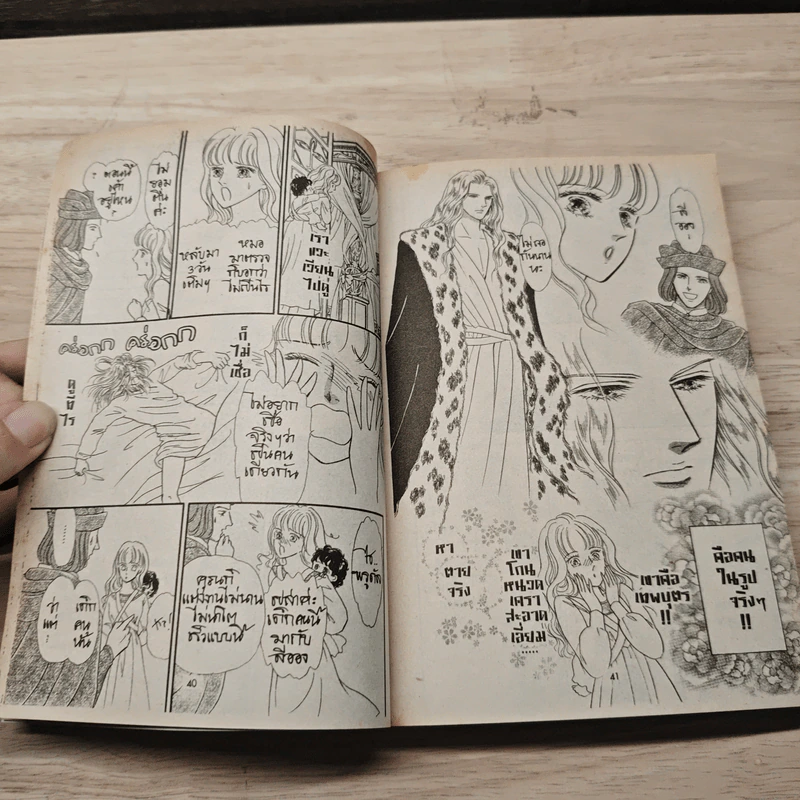 ไม่
ยอม
ตื่น
ค่ะ
ตอนนี้
เขา
อยู่ไหน
?
หมอ
มาตรวจ
ก็บอกว่า
ไม่เป็นไร
หลับมา
3 วัน
เต็มๆ
เรา
แวะ
เวียน
ไปดู
คร่อกก คร่อกก
ก็
ไม่
เชื่อ
ดูซิ
ไร
ไม่อยาก
เชื่อ
จริงๆว่า
เป็นคน
เดียวกัน
......
เด็ก
คน
นั้น
ว่า
แต่
แต่งงานไม่นาน
ไม่น่าโต
เร็วแบบนี้
เด็กคนนี้
มากับ
พี่ชอง
40
พี่
ชอง
ไม่เจอ
กันนาน
นะ
หา
ตาย
จริง
เขา
โกน
หนวด
เครา
สะอาด
เอี่ยม
.....
เขาคือ
เทพบุตร
!!
คือคน
ในรูป
จริงๆ
!!
41